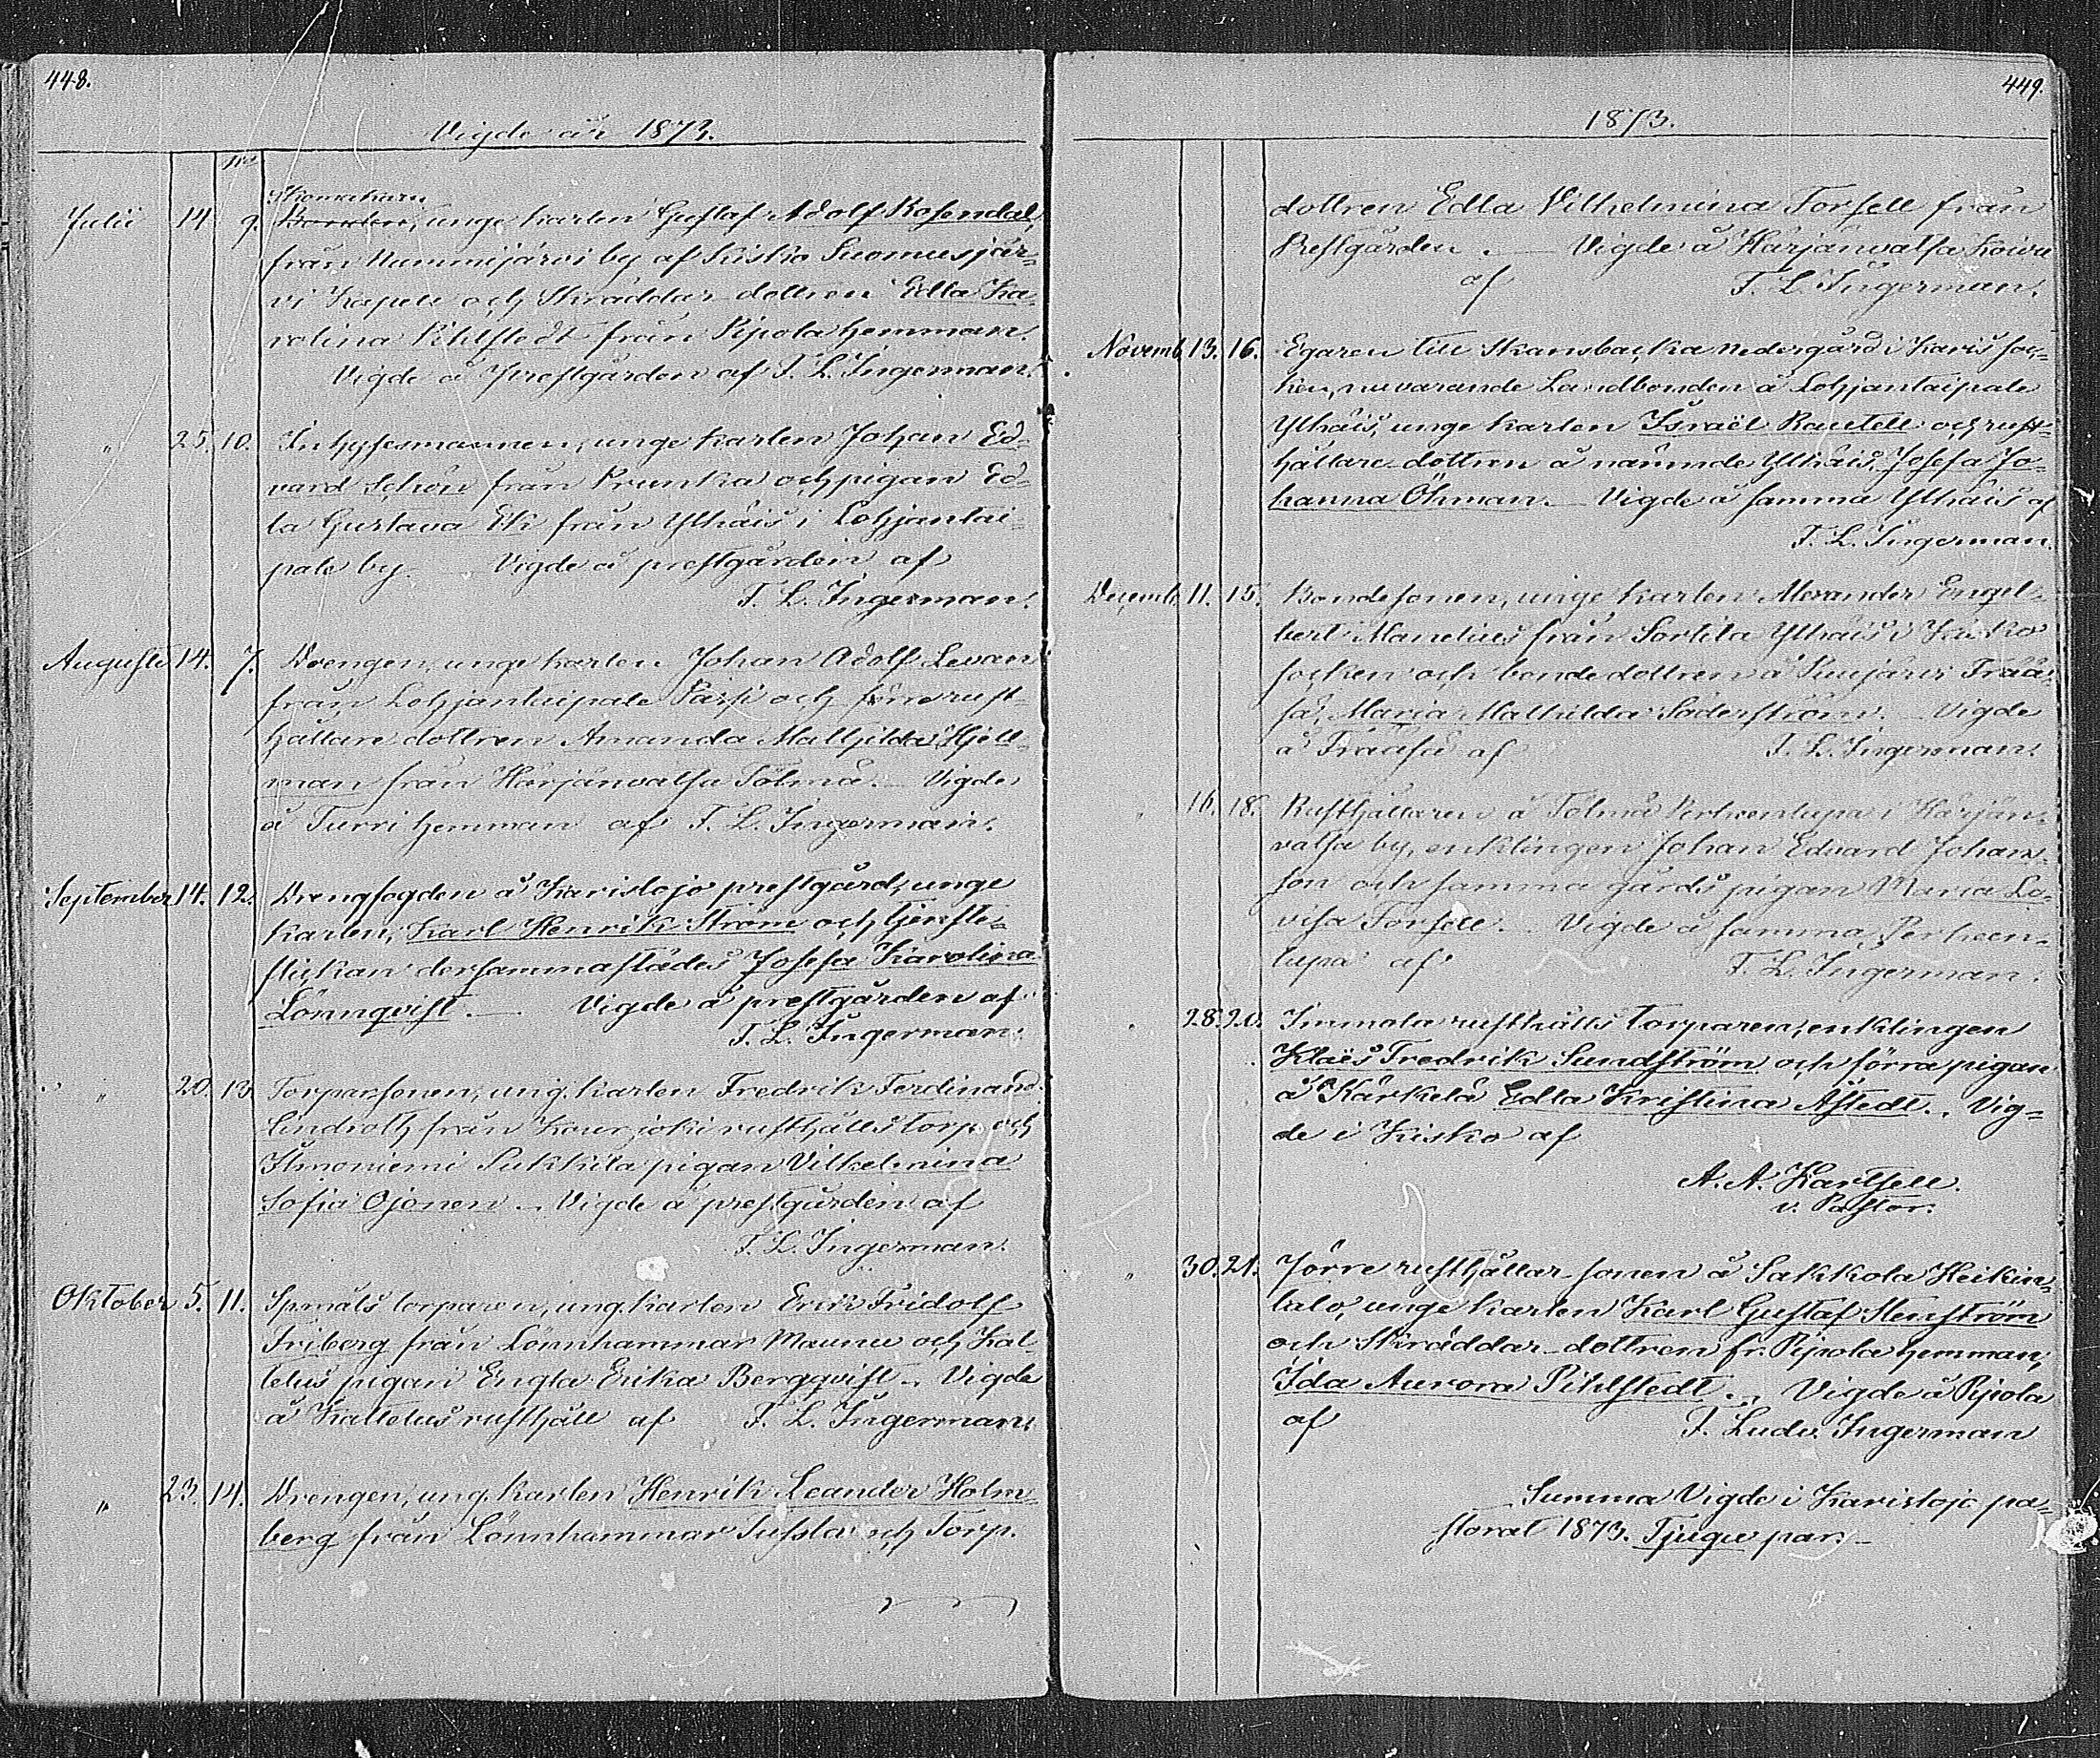 448.
Vigde år 1873.
No
Skomakaren
Julii 14 9. Bonden, unge karlen Gustaf Adolf Rosendal,
från Nummijärvi by af Kisko Suomusjär-
vi Kapell och Skräddar-dottren Edla Ka-
rolina Pihlstedt från Pipola hemman.
Vigde å prestgården af T. L. Ingerman.
" 25. 10. Inhysesmannen, unge karlen Johan Ed-
vard Schön från Prunka och pigan Ed-
la Gustava Ek från Ylhäis i Lohjantai-
pale by. Vigde å prestgården af
T. L. Ingerman.
Augusti 14. 7. Drengen, unge karlen Johan Adolf Levan
från Lohjantaipale Pärsi och förre rust-
hållare dottren Amanda Mathilda Hjell-
man från Härjänvatsa Tölmä. Vigde
å Turri hemman af T. L. Ingerman.
September 14. 12. Drengfogden å Karislojo prestgård, unge
karlen, Karl Henrik Ström och tjenste-
flickan dersammastädes Josefa Karolina
Lönnqvist. Vigde å prestgården af
T. L. Ingerman.
" 20. 13. Torparsonen, ung. karlen Fredrik Ferdinand
Lindroth från Kourjoki rusthålls torp och
Ilmoniemi Sukkila pigan Vilhelmina
Sofia Ojonen. Vigde å prestgården af
T. L. Ingerman.
Oktober 5. 11. Spmåls torparen, ung. karlen Erik Fridolf
Friberg från Lönnhammar Maunu och Kat-
telus pigan Engla Erika Bergqvist. Vigde
å Kattelus rusthåll af T. L. Ingerman.
" 23. 14. Drengen, ung. karlen Henrik Leander Holm-
berg från Lönnhammar och Torp.
449.
1873.
dottren Edla Vilhelmina Forsell från
Prestgården. Vigde å Härjänvatsa Koivu
af T. L. Ingerman.
Novemb. 13. 16. Egaren till Skansbacka Nedergård i Karis soc-
ken, nuvarande Landbonden å Lohjantaipale
Ylhäis, unge karlen Israël Rautell och rust-
hållare-dottren å nämnde Ylhäis, Josefa Jo-
hanna Öhman. Vigde å samma Ylhäis af
T. L. Ingerman.
Decemb. 11. 15. Bondesonen, unge karlen Alexander Engel-
bert Manelius från Sortila Ylhäis i Kisko
socken och bondedottren å Suujärvi Frää-
sä, Maria Mathilda Söderström. Vigde
å Frääsä af T. L. Ingerman.
" 16. 18. Rusthållaren å Tölmä Perheentupa i Härjän-
vatsa by, enklingen Johan Edvard Johans-
son och samma gårds pigan Maria Lo-
visa Forsell. Vigde å samma Perheen-
tupa af T. L. Ingerman.
" 28. 20. Immola rusthålls torparen, enklingen
Klaës Fredrik Sundström och förra pigan
å Kärkelä Edla Kristina Åstedt. Vig-
de i Kisko af
A. A. Kartsell.
v. Pastor.
" 30. 21. Förre rusthållar-sonen å Sakkola Heikin-
talo, unge karlen Karl Gustaf Stenström
och Skräddar-dottren fr. Pipola hemman,
Ida Aurora Pihlstedt. Vigde å Pipola
af T. Ludv. Ingerman
Summa Vigde i Karislojo pa-
storat 1873. Tjugu par.